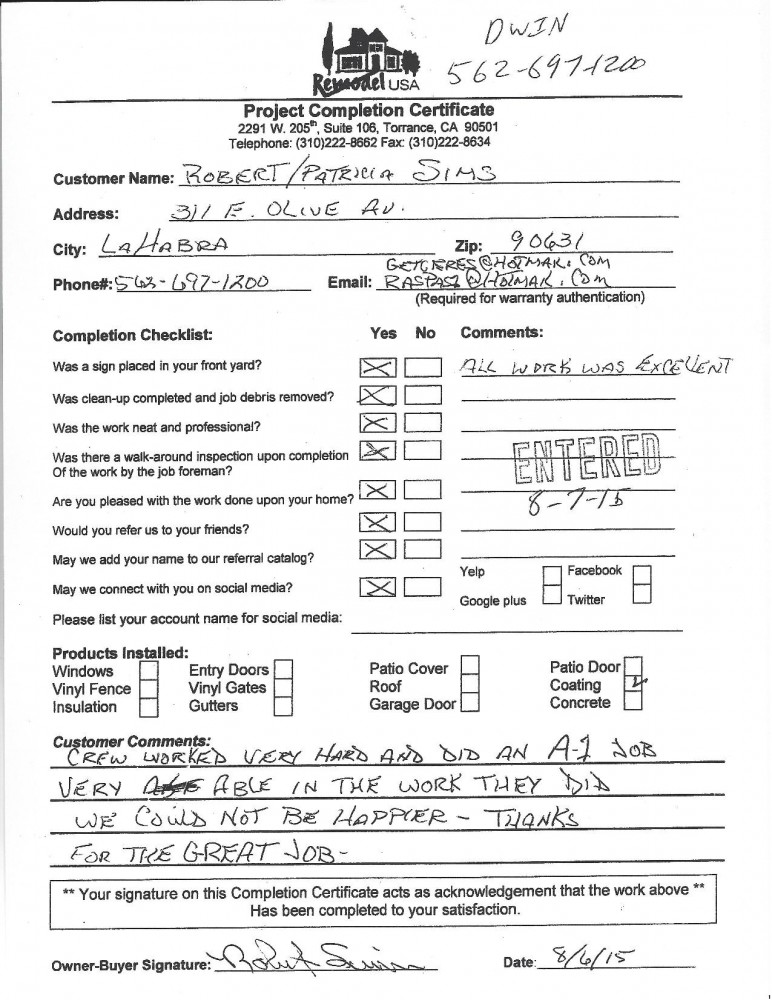 DWIN
562-697-1200
Remodel USA
Project Completion Certificate
2291 W. 205th, Suite 106, Torrance, CA 90501
Telephone: (310)222-8662 Fax: (310)222-8634
Customer Name: ROBERT/PATRICIA SIMS
Address: 311 E. OLIVE AV.
City: LA HABRA Zip: 90631
@HOTMAIL.COM
Phone#: 562-697-1200 Email: @HOTMAIL.COM
(Required for warranty authentication)
Completion Checklist: Yes No Comments:
Was a sign placed in your front yard? X ALL WORK WAS EXCELLENT
Was clean-up completed and job debris removed? X
Was the work neat and professional? X
Was there a walk-around inspection upon completion X
Of the work by the job foreman?
ENTERED
Are you pleased with the work done upon your home? X
8-7-15
Would you refer us to your friends? X
May we add your name to our referral catalog? X
Yelp Facebook
May we connect with you on social media? X
Google plus Twitter
Please list your account name for social media:
Products Installed:
Windows Entry Doors Patio Cover Patio Door
Vinyl Fence Vinyl Gates Roof Coating ✓
Insulation Gutters Garage Door Concrete
Customer Comments:
CREW WORKED VERY HARD AND DID AN A-1 JOB
VERY ABLE IN THE WORK THEY DID
WE COULD NOT BE HAPPIER - THANKS
FOR THE GREAT JOB -
** Your signature on this Completion Certificate acts as acknowledgement that the work above **
Has been completed to your satisfaction.
Owner-Buyer Signature: Robert Sims Date: 8/6/15